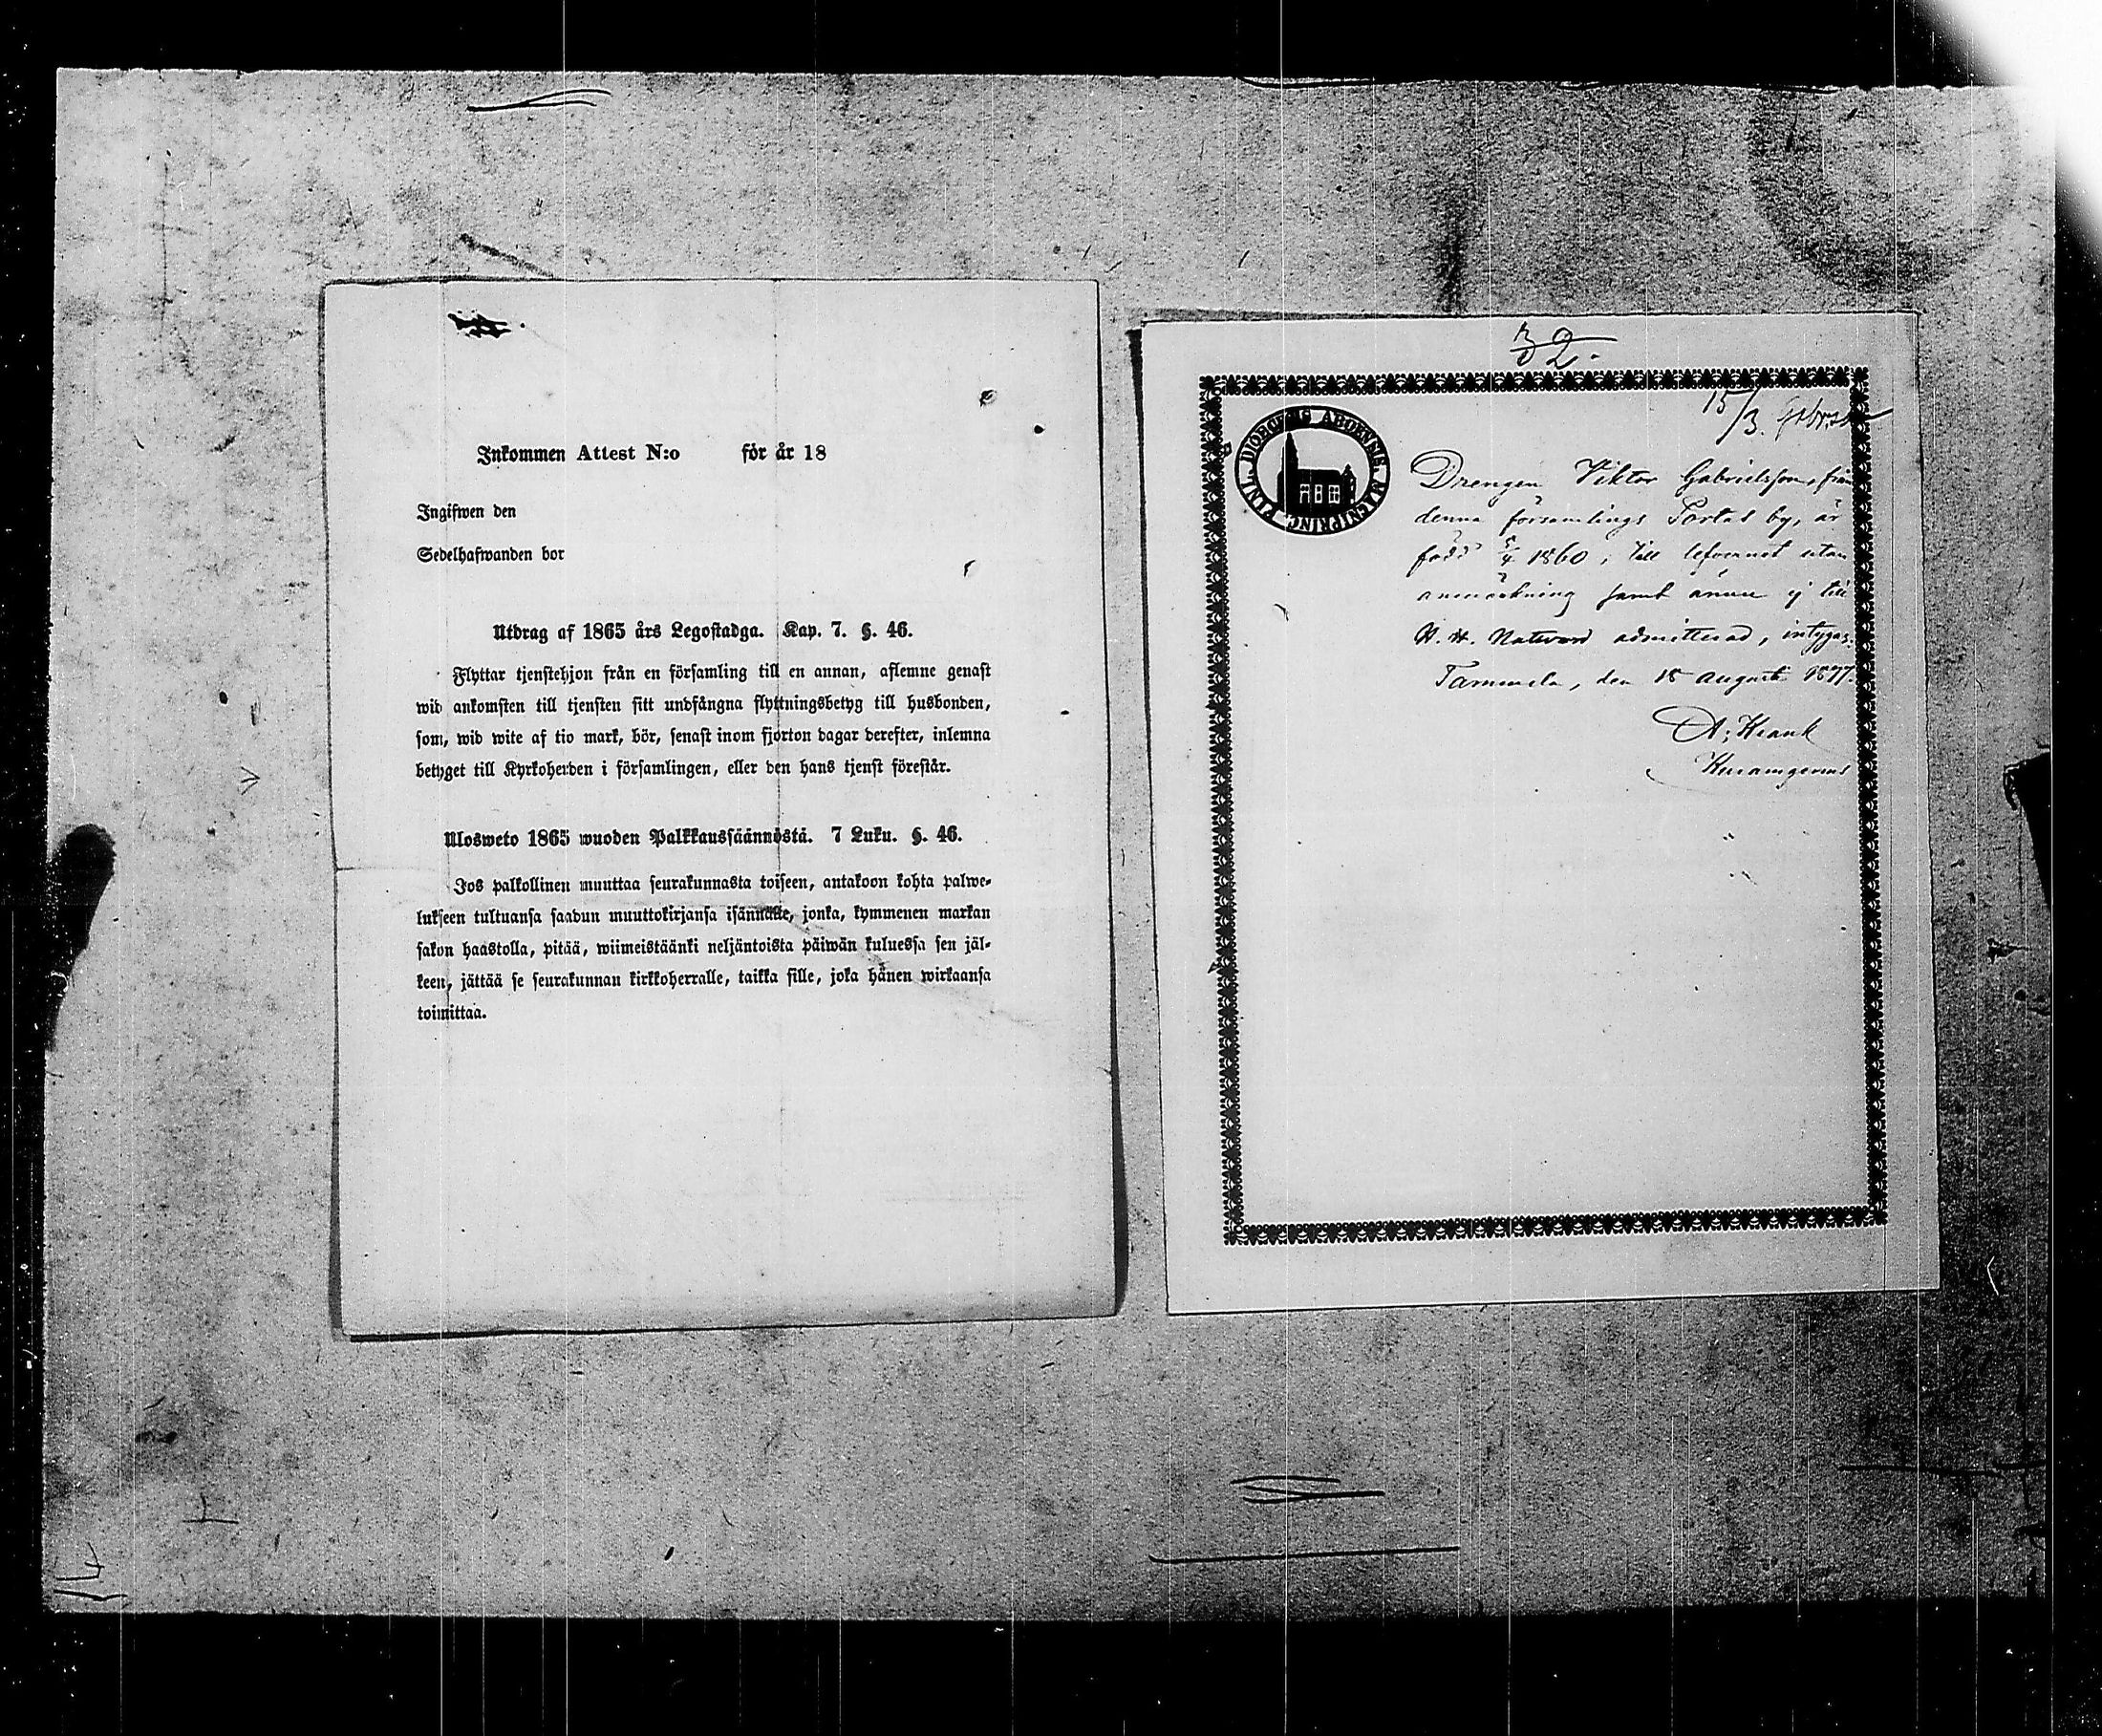 Inkommen Attest N:o för år 18
Ingifwen den
Sedelhafwanden bor
Utdrag af 1865 års Legostadga. Kap. 7. §. 46.
Flyttar tjenstehjon från en församling till en annan, aflemne genast
wid ankomsten till tjensten sitt undfångna flyttningsbetyg till husbonden,
som, wid wite af tio mark, bör, senast inom fjorton dagar derefter, inlemna
betyget till Kyrkoherden i församlingen, eller den hans tjenst förestår.
Ulosweto 1865 wuoden Palkkaussäännöstä. 7 Luku. §. 46.
Jos palkollinen muuttaa seurakunnasta toiseen, antakoon kohta palwe-
lukseen tultuansa saadun muuttokirjansa isännälle, jonka, kymmenen markan
sakon haastolla, pitää, wiimeistäänki neljäntoista päiwän kuluessa sen jäl-
keen, jättää se seurakunnan kirkkoherralle, taikka sille, joka hänen wirkaansa
toimittaa.
32.
15/3.
Drengen Viktor Gabrielsson, från
denna församlings Portas by, är
född 5/4 1860, till lefvernet utan
anmärkning samt ännu ej till
H. H. Nattvard admitterad, intygas.
Tammela, den 18 Augusti 1877.